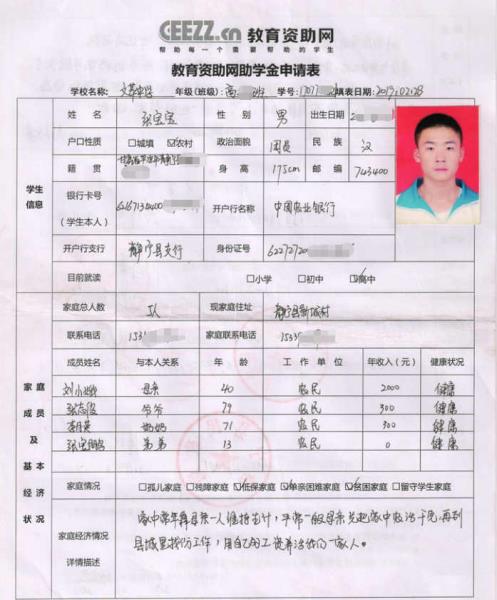 CEEZZ.cn 教育资助网
帮助每一个需要帮助的学生
教育资助网助学金申请表
学校名称: 年级(班级): 高 班 学号: 填表日期: 2017.02.28
姓名 张宝宝 性别 男 出生日期
户口性质 □城填 ☑农村 政治面貌 团员 民族 汉
籍贯 身高 175cm 邮编 743400
学生信息
银行卡号(学生本人) 开户行名称 中国农业银行
开户行支行 静宁县支行 身份证号 62272720
目前就读 □小学 □初中 ☑高中
家庭总人数 5人 现家庭住址 静宁县新城村
联系电话 153 家庭联系电话 1533
成员姓名 与本人关系 年龄 工作单位 年收入(元) 健康状况
家庭成员及基本经济状况
刘小娥 母亲 40 农民 2000 健康
张志俊 爷爷 79 农民 300 健康
李月英 奶奶 71 农民 300 健康
张宝 弟弟 13 农民 0 健康
家庭情况 □孤儿家庭 □独障家庭 ☑低保家庭 ☑单亲困难家庭 ☑贫困家庭 □留守学生家庭
家庭经济情况详情描述
家中常年靠母亲一人维持生计,平常一般母亲先把家中农活干完,再到
县城里找份工作,用自己的工资养活我们一家人。